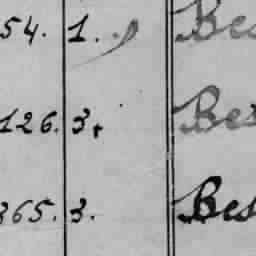 54. 1. Bes
126. 3. Bes
365. 3. Bes